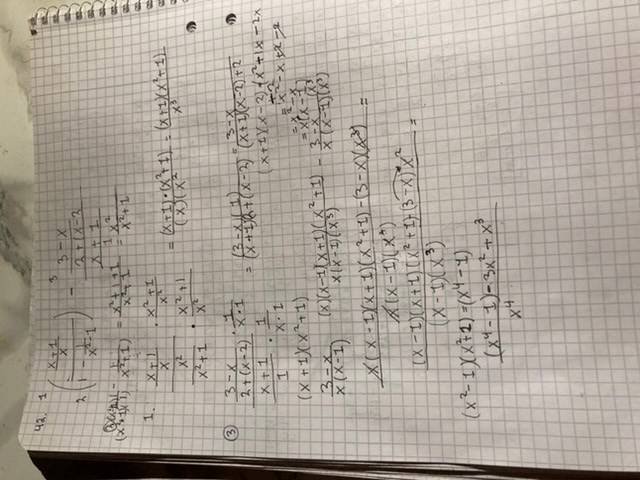 42. 1 ( (x+1)/x ) / 2 ( 1 - 1/(x²+1) ) - 3 (3-x) / ( (2+(x-2)) / (x+1) )
= (x²+1-1)/(x²+1) = x²/(x²+1)
1. ((x+1)/x · (x²+1)/x²) / (x²/(x²+1) · (x²+1)/x²) = ((x+1)·(x²+1))/((x)(x²)) = ((x+1)(x²+1))/x³
③ (3-x)/(2+(x-2)) · 1/(x·1)
(x+1)/1 · 1/(x·1)
= (3-x)(1)
= (3-x)/((x+1)(x-2)+2)
(x+1)(x-2) = x²+1x-2x
= x²-x
= x(x-1)
(x+1)(x²+1)
(3-x)/(x(x-1))
((x)(x-1)(x+1)(x²+1))/(x(x-1)(x³)) - (3-x(x³))/(x(x-1)(x³))
(x(x-1)(x+1)(x²+1)-(3-x)(x³))/(x(x-1)(x³)) =
((x-1)(x+1)(x²+1)-(3-x)x²)/((x-1)(x³)) =
(x²-1)(x²+1) = (x⁴-1)
((x⁴-1)-3x²+x³)/x⁴